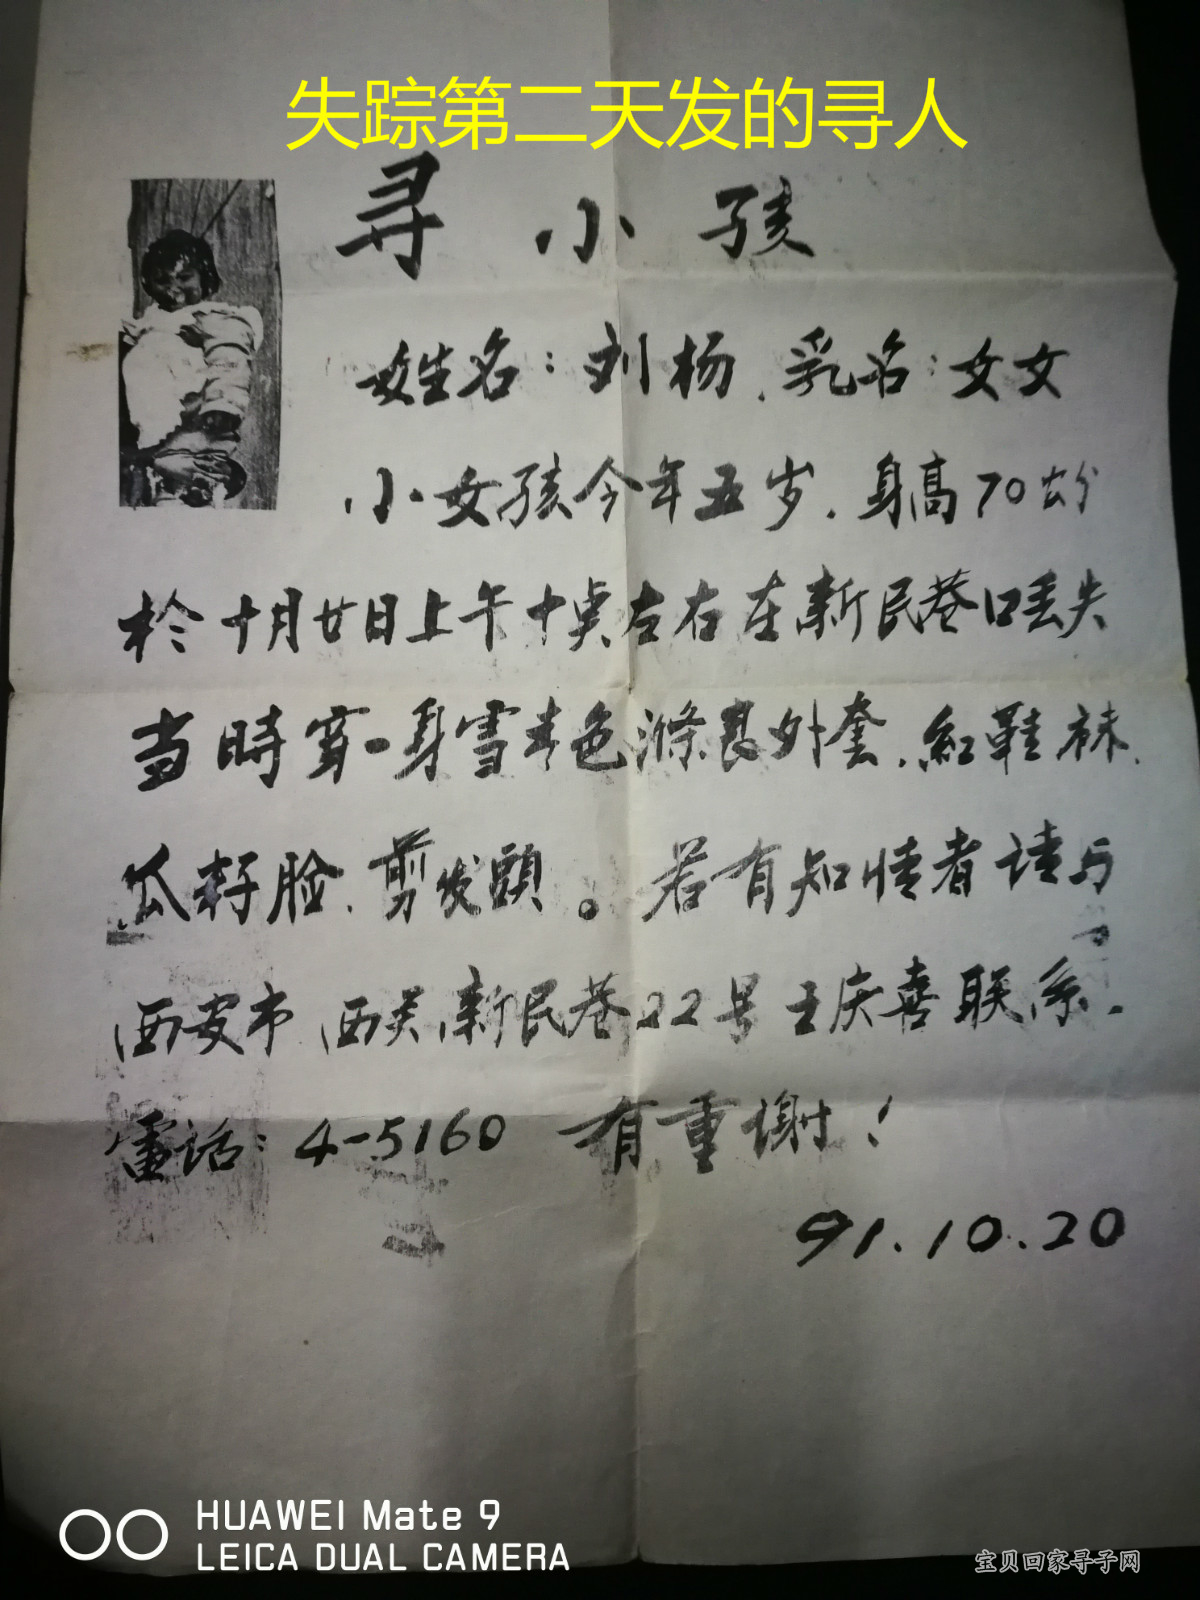 失踪第二天发的寻人
寻 小 孩
姓名：刘杨．乳名：女女
小女孩今年五岁．身高70公分
於十月廿日上午十点左右在新民巷口丢失
当時穿一身雪青色滌良外套．紅鞋袜．
瓜籽脸．剪发頭。若有知情者请与
西安市 西关新民巷22号王庆喜联系．
電话：4-5160 有重谢！
91.10.20
HUAWEI Mate 9
LEICA DUAL CAMERA
宝贝回家寻子网